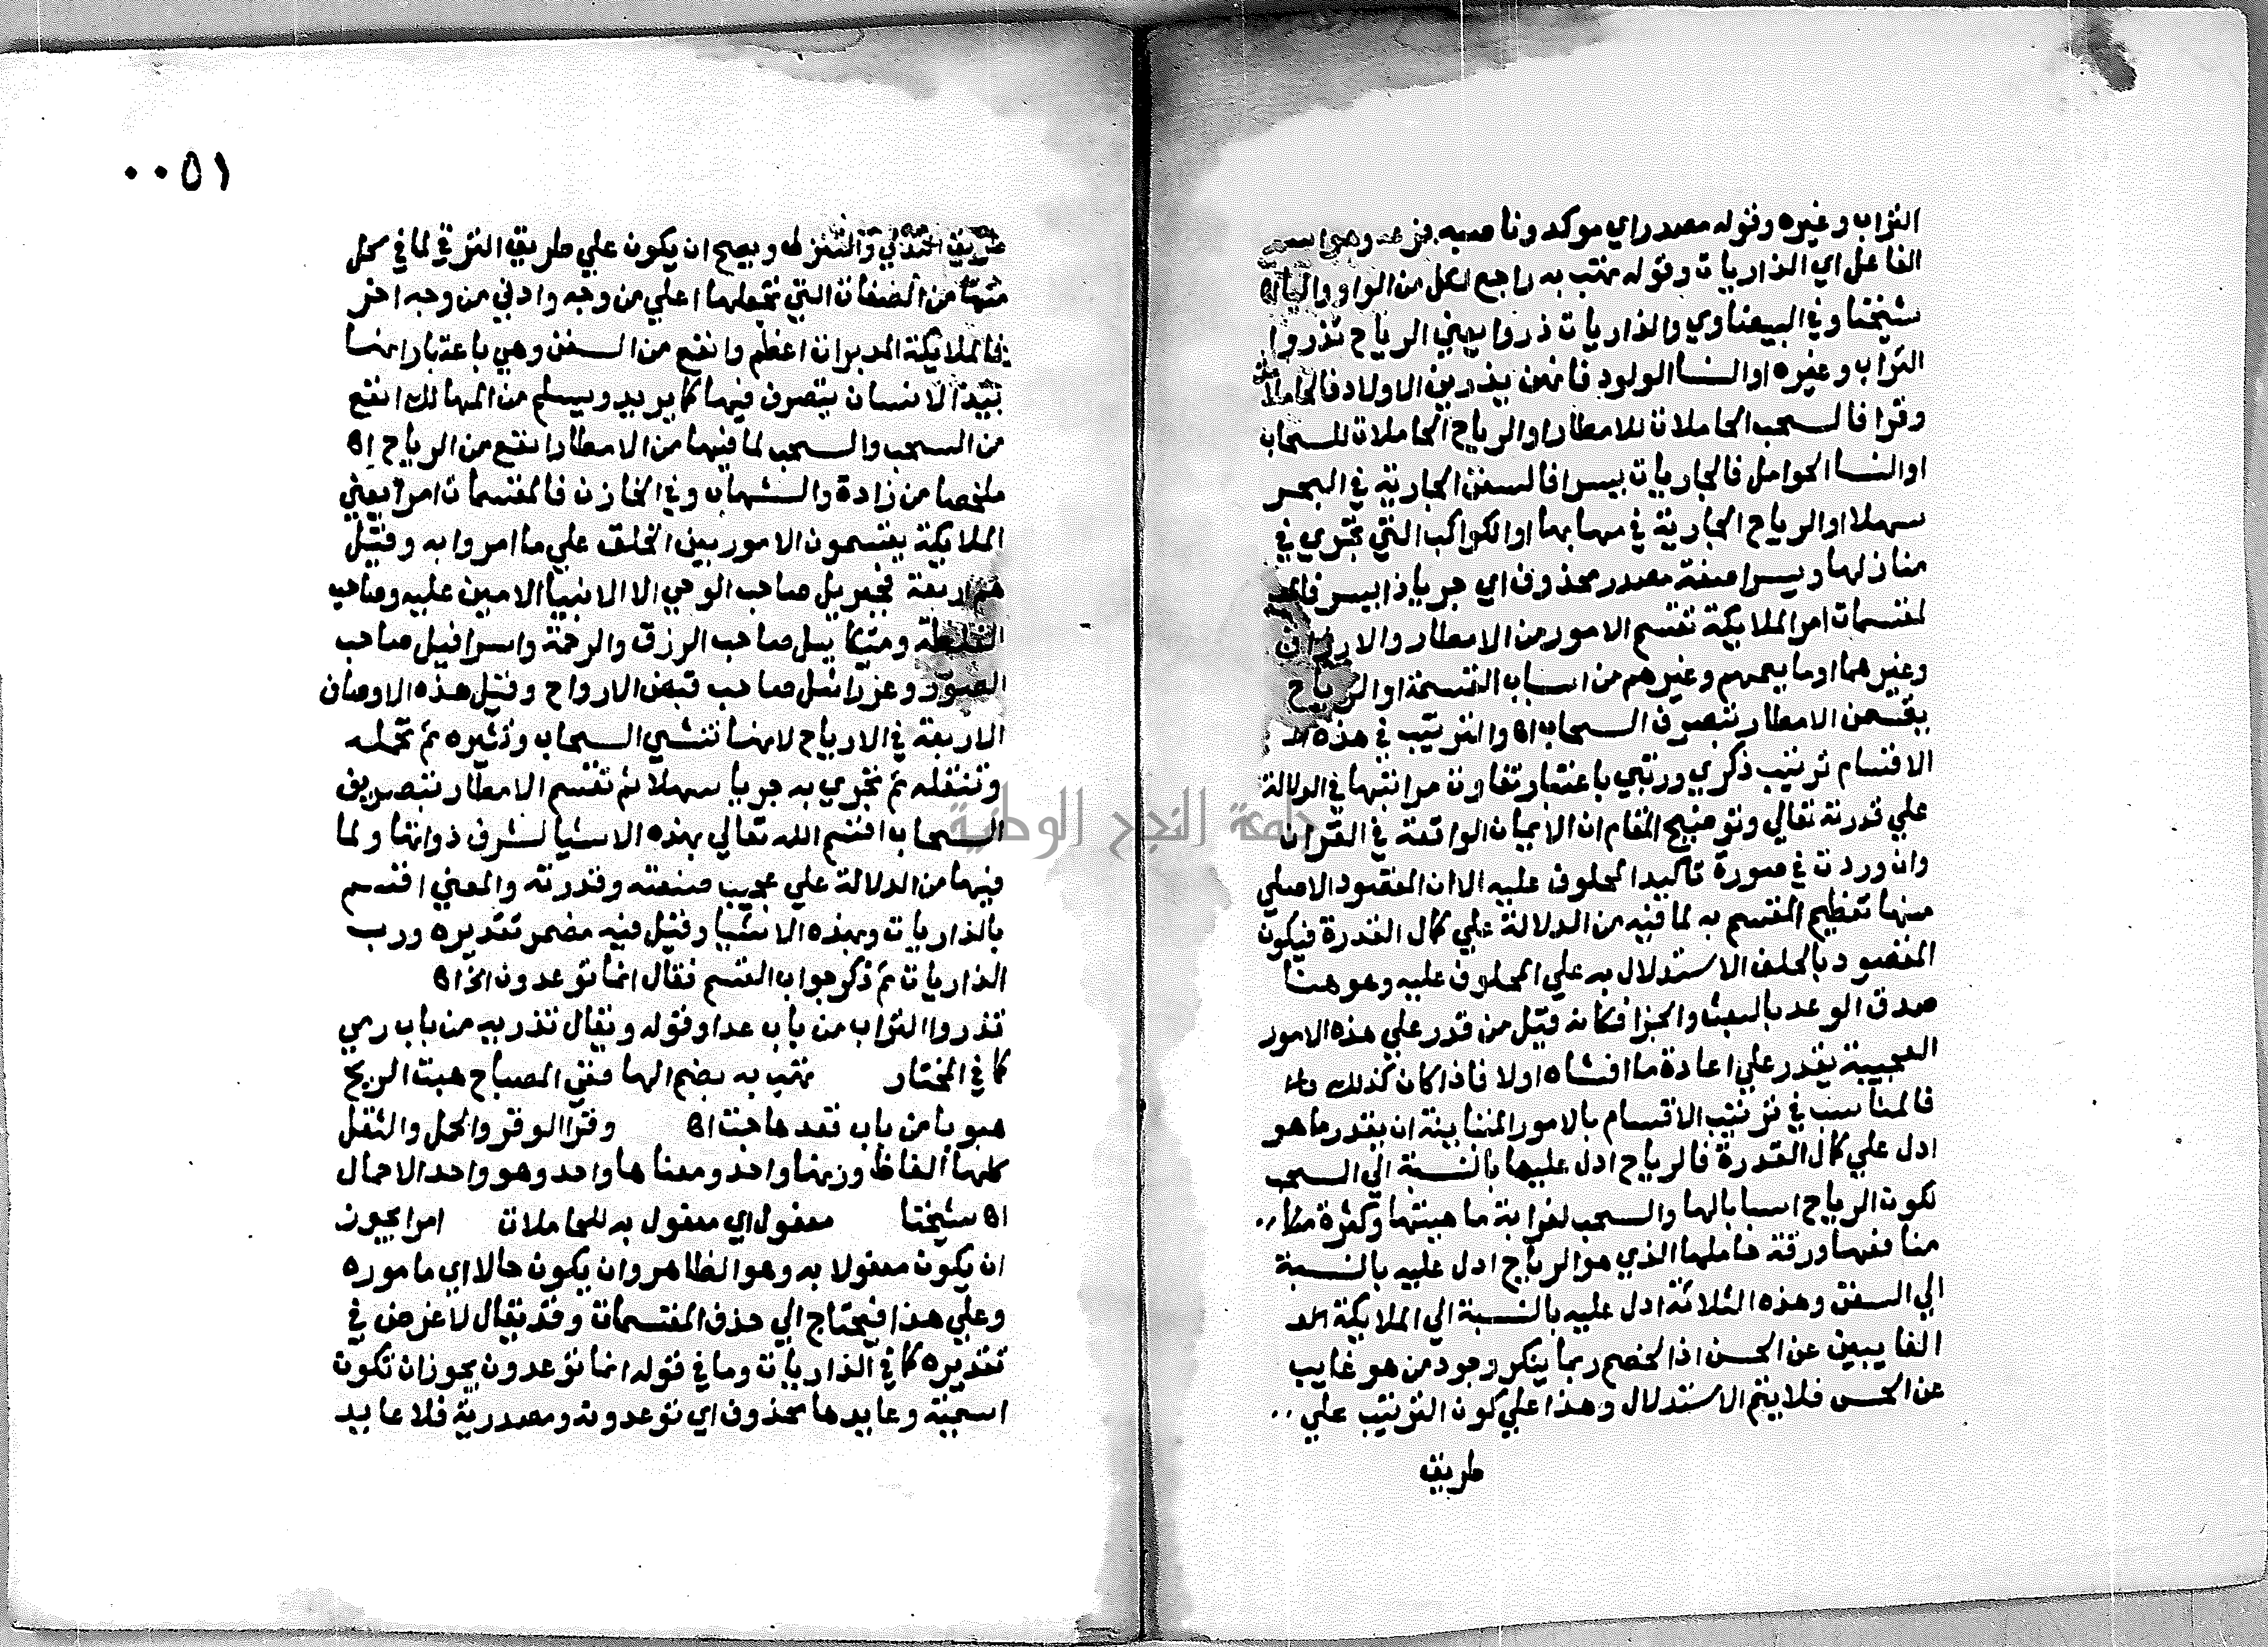 التراب وغيره وقوله مصدر اي موكد وناصبه فرعه وهو اسم
الفاعل اي الذاريات وقوله تهب به راجع لكل من الواو والياء اه
شيخنا وفي البيضاوي والذاريات ذروا يعني الرياح تذروا
التراب وغيره او النسا الولود فانهن يذرين الاولاد فالحاملات
وقرا فالسحب الحاملات للامطار او الرياح الحاملات للسحاب
او النسا الحوامل فالجاريات يسرا فالسفن الجارية في البحر
سهلا او الرياح الجارية في مهابها او الكواكب التي تجري في
منازلها ويسرا صفة مصدر محذوف اي جريا ذا يسر فالمـ
لمقسمات امرا الملايكة تقسم الامور من الامطار والارزاق
وغيرهما او ما يعمهم وغيرهم من اسباب القسمة او الرياح
يقسمن الامطار بتصرف السحاب اه والترتيب في هذه الا
الاقسام ترتيب ذكري ورتبي باعتبار تفاوت مراتبها في الدلالة
علي قدرته تعالي وتوضيح المقام ان الايمان الواقعة في القران
وان وردت في صورة تاكيد المحلوف عليه الا ان المقصود الاصلي
منها تعظيم المقسم به لما فيه من الدلالة علي كمال القدرة فيكون
المقصود بالحلف الاستدلال به علي المحلوف عليه وهو هنا
صدق الوعد بالبعث والجزا فكانه قيل من قدر علي هذه الامور
العجيبة يقدر علي اعادة ما انشاه اولا فاذا كان كذلك فا
فالمناسب في ترتيب الاقسام بالامور المتباينة ان يقدر ما هو
ادل علي كمال القدرة فالرياح ادل عليها بالنسبة الي السحب
لكون الرياح اسبابا لها والسحب لغرابة ماهيتها وكثرة منا
منافعها ورقة حاملها الذي هو الرياح ادل عليه بالنسبة
الي السفن وهذه الثلاثة ادل عليه بالنسبة الي الملايكة الـ
الغايبين عن الحس اذ الخصم ربما ينكر وجود من هو غايب
عن الحس فلا يتم الاستدلال وهذا علي كون الترتيب علي
طريق
٠٠٥١
طريق التدلي والتنزل وبصح ان يكون علي طريق الترقي لما في كل
منها من الصفات التي تجعلها اعلي من وجه وادني من وجه اخر
فالملايكة المدبرات اعظم وانفع من السفن وهي باعتبار انها
بيد الانسان يتصرف فيها كما يريد ويسلم من المهالك انفع
من السحب والسحب لما فيها من الامطار انفع من الرياح اه
ملخصا من زادة والشهاب وفي الخازن فالمقسمات امرا يعني
الملايكة يقسمون الامور بين الخلق علي ما امروا به وقيل
هم اربعة فجبريل صاحب الوحي الا الانبيا الامين عليه وصاحب
الغلظة وميكاييل صاحب الرزق والرحمة واسرافيل صاحب
الصور وعزرائيل صاحب قبض الارواح وقيل هذه الاوصاف
الاربعة في الارياح لانها تنشي السحاب وتثيره ثم تحمله
وتنقله ثم تجري به جريا سهلا ثم تقسم الامطار بتصريف
السحاب اقسم الله تعالي بهذه الاشيا لشرف ذواتها ولما
فيها من الدلالة علي عجيب صنعته وقدرته والمعني اقسم
بالذاريات وبهذه الاشيا وقيل فيه مضمر تقديره ورب
الذاريات ثم ذكر جواب القسم فقال انما توعدون الخ اه
تذروا التراب من باب عدا وقوله ويقال تذريه من باب رمي
كما في المختار تهب به بضم الها ففي المصباح هبت الريح
هبوبا من باب قعد هاجت اه وقرا الوقر والحمل والثقل
كلها الفاظ وزنها واحد ومعناها واحد وهو واحد الاحمال
اه شيخنا مفعول اي مفعول به للحاملات امرا يجوز
ان يكون مفعولا به وهو الظاهر وان يكون حالا اي مامورة
وعلي هذا فيحتاج الي حذف المقسمات وقد يقال لا غرض في
تقديره كما في الذاريات وما في قوله انما توعدون يجوز ان تكون
اسمية وعايدها محذوف اي توعدونه ومصدرية فلا عايد